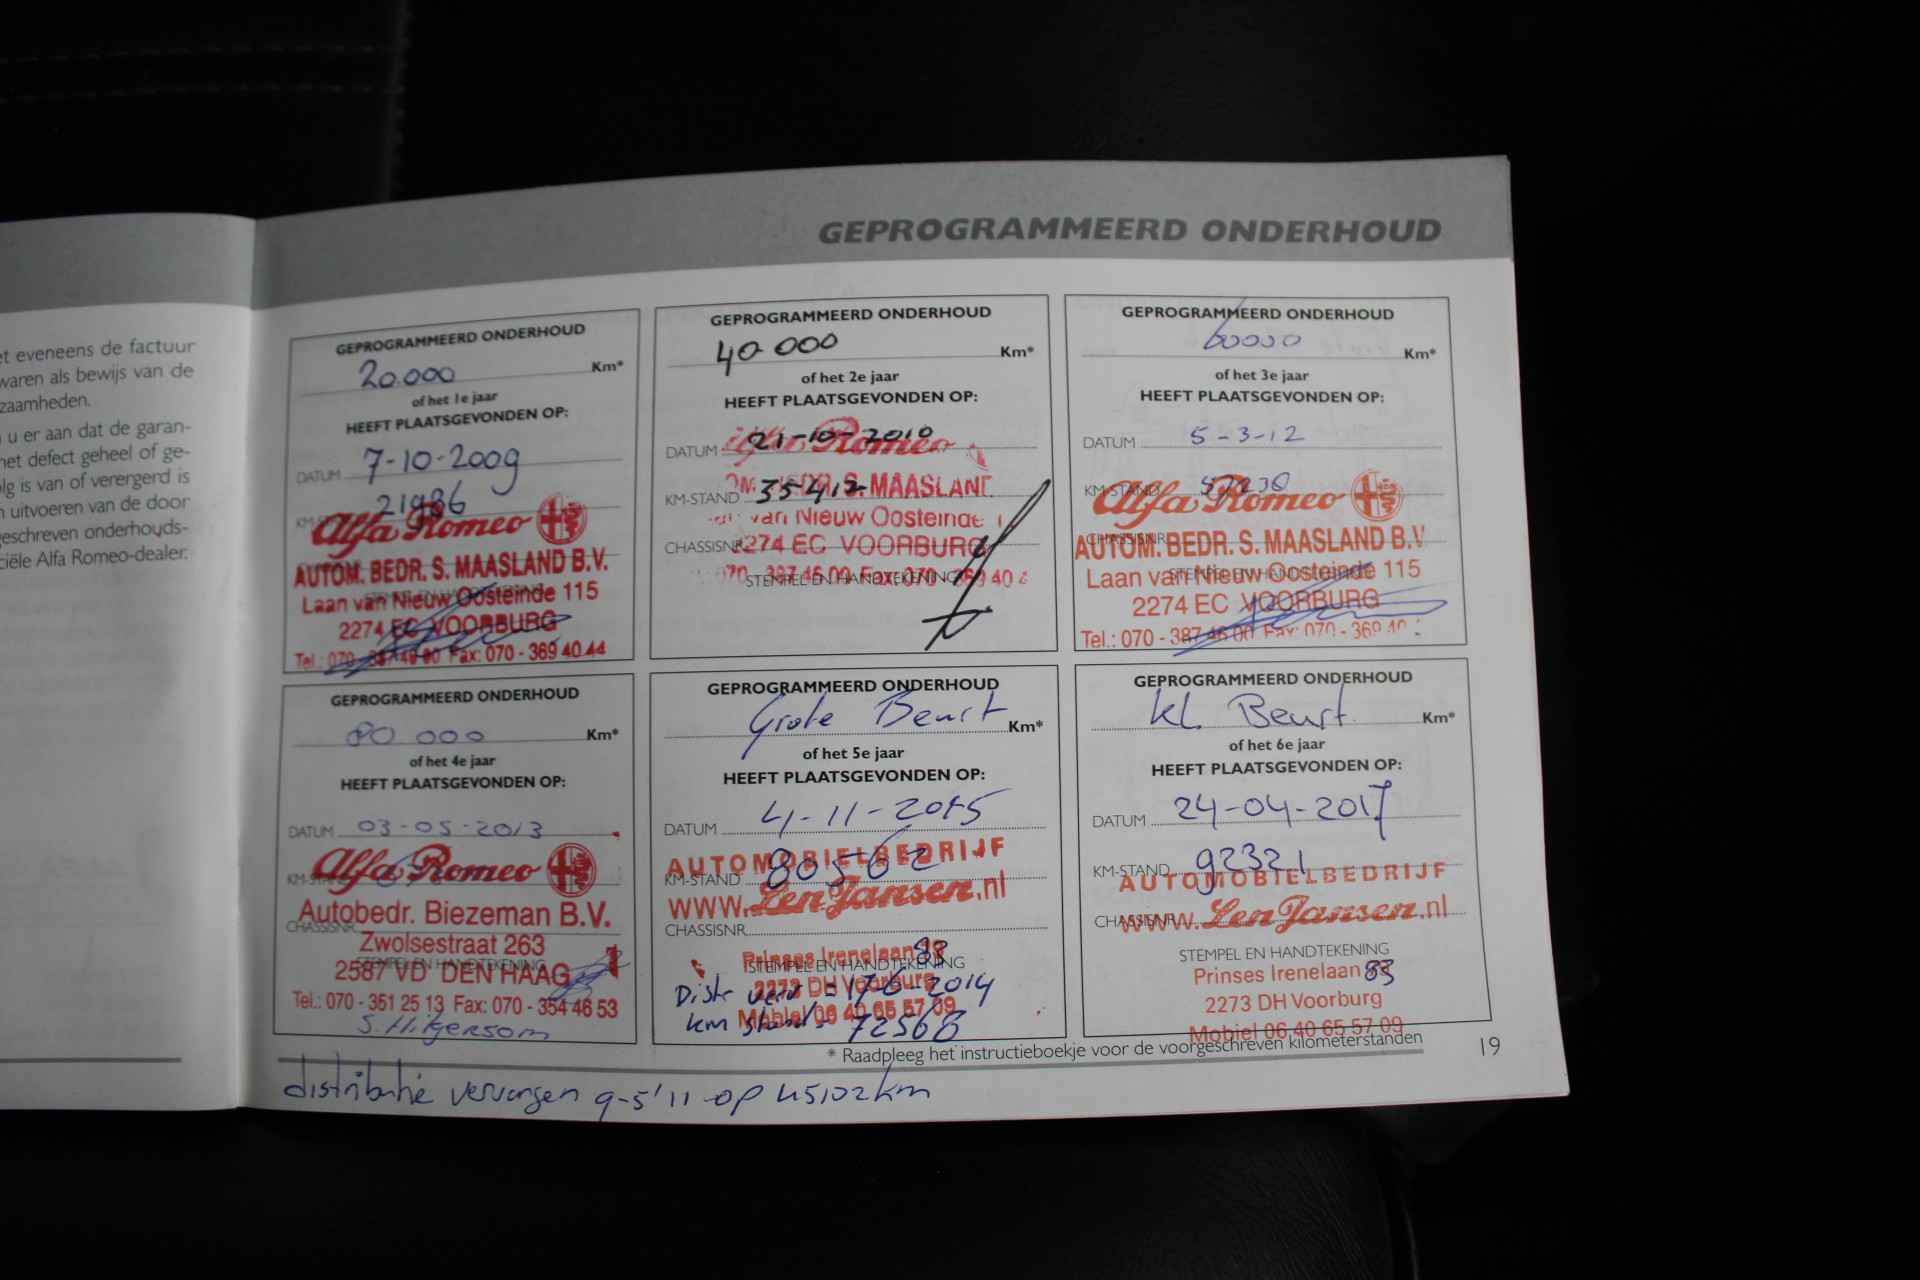 et eveneens de factuur
waren als bewijs van de
zaamheden.
u er aan dat de garan-
het defect geheel of ge-
lg is van of verergerd is
uitvoeren van de door
eschreven onderhouds-
ciële Alfa Romeo-dealer.
GEPROGRAMMEERD ONDERHOUD
GEPROGRAMMEERD ONDERHOUD
20.000 Km*
of het 1e jaar
HEEFT PLAATSGEVONDEN OP:
DATUM 7-10-2009
21986
Alfa Romeo
AUTOM. BEDR. S. MAASLAND B.V.
Laan van Nieuw Oosteinde 115
2274 EC VOORBURG
Tel.: 070 - 387 46 00 Fax: 070 - 369 40 44
GEPROGRAMMEERD ONDERHOUD
40.000 Km*
of het 2e jaar
HEEFT PLAATSGEVONDEN OP:
DATUM 21-10-2010
Romeo
KM-STAND 35412
S. MAASLAND
van Nieuw Oosteinde 1
CHASSISNR.
2274 EC VOORBURG
STEMPEL EN HANDTEKENING
070 - 387 46 00 Fax: 070 - 369 40 4
GEPROGRAMMEERD ONDERHOUD
60000 Km*
of het 3e jaar
HEEFT PLAATSGEVONDEN OP:
DATUM 5-3-12
KM-STAND 57230
Alfa Romeo
CHASSISNR.
AUTOM. BEDR. S. MAASLAND B.V
Laan van Nieuw Oosteinde 115
STEMPEL EN HANDTEKENING
2274 EC VOORBURG
Tel.: 070 - 387 46 00 Fax: 070 - 369 40
GEPROGRAMMEERD ONDERHOUD
80 000 Km*
of het 4e jaar
HEEFT PLAATSGEVONDEN OP:
DATUM 03-05-2013
Alfa Romeo
KM-STAND
Autobedr. Biezeman B.V.
CHASSISNR.
Zwolsestraat 263
STEMPEL EN HANDTEKENING
2587 VD DEN HAAG 1
Tel.: 070 - 351 25 13 Fax: 070 - 354 46 53
S. Hilgersom
GEPROGRAMMEERD ONDERHOUD
Grote Beurt Km*
of het 5e jaar
HEEFT PLAATSGEVONDEN OP:
DATUM 4-11-2015
AUTOMOBIELBEDRIJF
KM-STAND 80562
www.Len Jansen.nl
CHASSISNR.
Prinses Irenelaan 83
STEMPEL EN HANDTEKENING
2273 DH Voorburg
Distr verv = 17-6-2014
Mobiel 06 40 65 57 09
km stand. 72568
GEPROGRAMMEERD ONDERHOUD
kl. Beurt. Km*
of het 6e jaar
HEEFT PLAATSGEVONDEN OP:
DATUM 24-04-2017
KM-STAND 92321
AUTOMOBIELBEDRIJF
CHASSISNR.
www.Len Jansen.nl
STEMPEL EN HANDTEKENING
Prinses Irenelaan 83
2273 DH Voorburg
Mobiel 06 40 65 57 09
* Raadpleeg het instructieboekje voor de voorgeschreven kilometerstanden
19
distributie vervangen 9-5'11 op 45102km